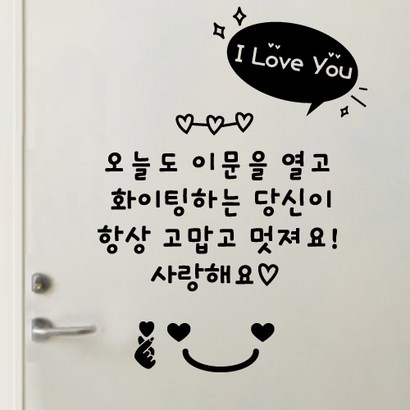 I Love You
오늘도 이문을 열고
화이팅하는 당신이
항상 고맙고 멋져요!
사랑해요♡